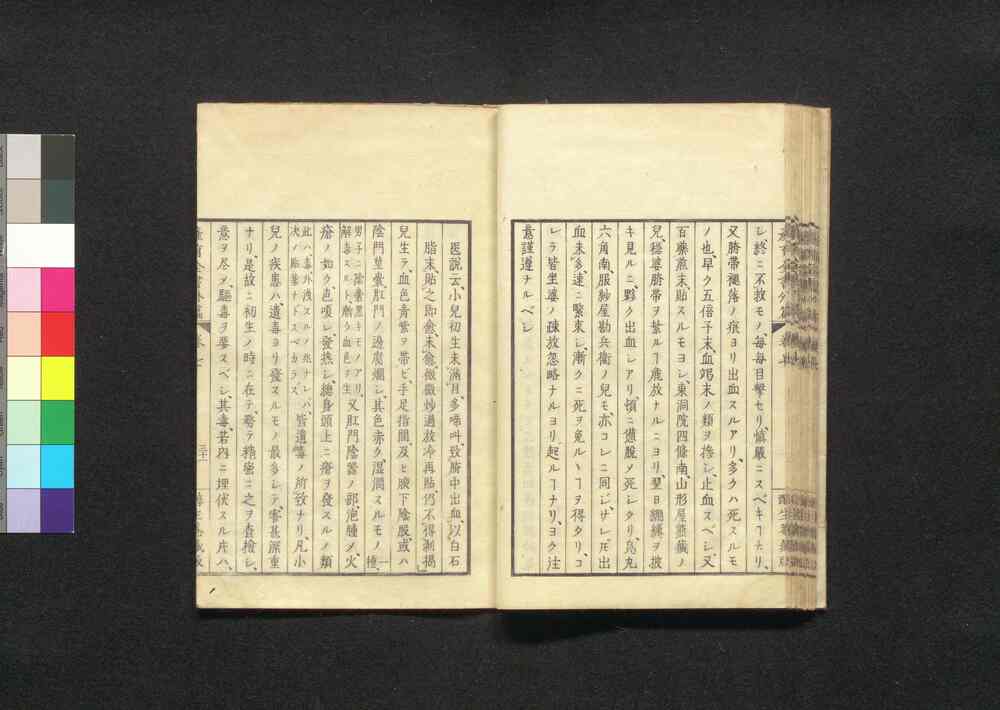 シ終ニ不救モノ、毎毎目撃セリ、慎嚴ニスベキヿナリ、
又臍帯褪落ノ痕ヨリ出血スルアリ、多クハ死スルモ
ノ也、早ク五倍子末血竭末ノ類ヲ摻シ、止血スベシ、又
百藥煎末、貼スルモヨシ、東洞院四條南、山形屋熊藏ノ
兒、穏婆臍帯ヲ紮スルヿ麁放ナルニヨリ、翌日繃縛ヲ披
キ見ルニ、夥ク出血シアリ、頓ニ虚脱ノ死シタリ、烏丸
六角南、服紗屋勘兵衛ノ兒モ、亦コレニ同ジ、サレ𪜈出
血未多、速ニ緊束シ、漸ク死ヲ免ルヽヿヲ得タリ、コ
レラ皆坐婆ノ疎放忽略ナルヨリ起ルヿナリ、ヨク注
意謹遵ナルベシ
医説云、小兒初生未滿月、多啼叫、致臍中出血、以白石
脂末、貼之即愈、未愈、微微炒過放冷再貼、仍不得剥揭
兒生テ、血色青紫ヲ帯ビ、手足指間、及ヒ腋下陰股、或ハ
陰門睾囊肛門ノ邊、腐爛シ、其色赤ク、湿潤スルモノ、一種
男子ニ陰囊黒キモノアリ、
解毒スルト、漸ク血色ヲ生
又肛門陰器ノ部、泡腫ノ火
瘡ノ如ク、色㷔シ、發熱シ、總身頭上ニ瘡ヲ發スルノ類
此ハ毒ノ外洩スルノ兆ナレバ、
决ノ貼藥ナドスベカラズ
皆遺毒ノ所致ナリ、凡小
兒ノ疾患ハ、遺毒ヨリ發スルモノ最多シテ、害甚深重
ナリ、是故ニ初生ノ時ニ在テ、務テ精密ニ之ヲ査撿シ、
意ヲ尽ノ、驅毒ヲ要スベシ、其毒、若内ニ埋伏スル𪜈ハ、